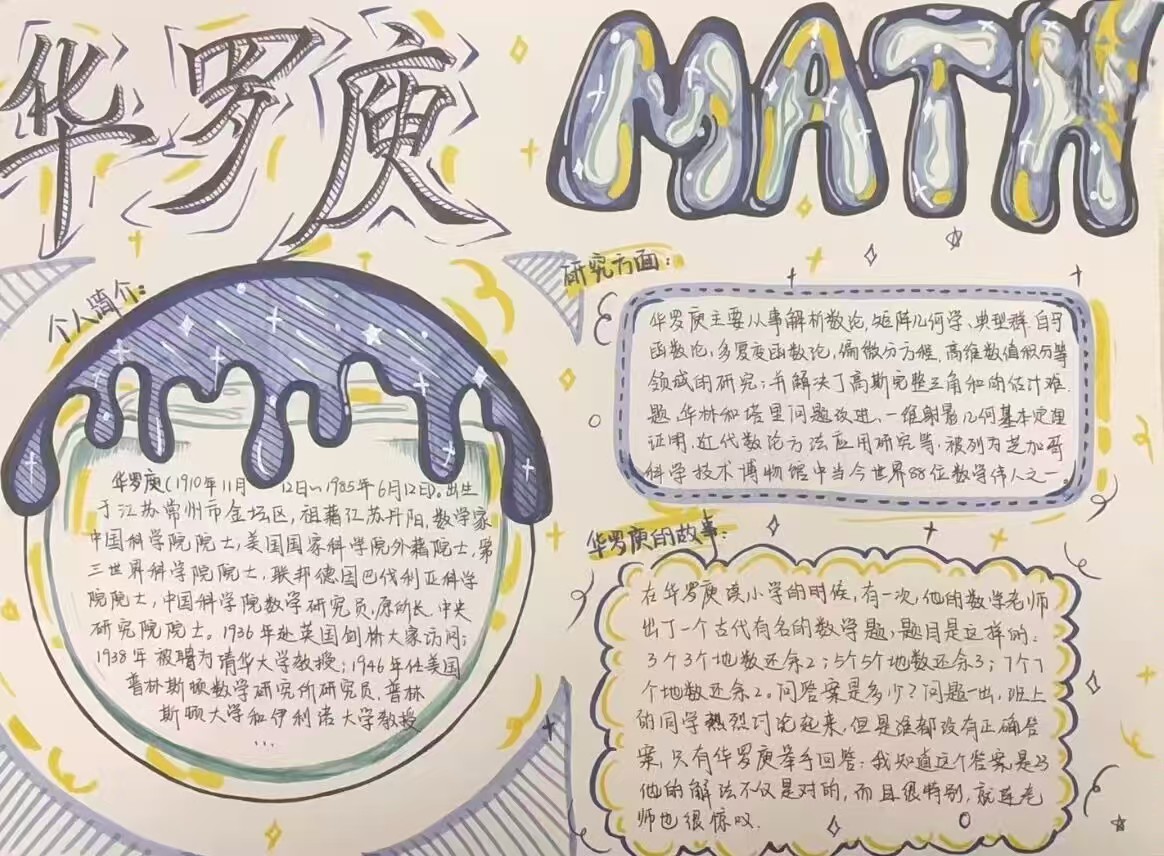 华罗庚
MATH
个人简介:
华罗庚(1910年11月 12日~1985年6月12日)。出生
于江苏常州市金坛区,祖籍江苏丹阳,数学家
中国科学院院士,美国国家科学院外籍院士,第
三世界科学院院士,联邦德国巴伐利亚科学
院院士,中国科学院数学研究员,原所长.中央
研究院院士。1936年赴英国剑桥大家访问;
1938年被聘为清华大学教授;1946年任美国
普林斯顿数学研究所研究员.普林
斯顿大学和伊利诺大学教授
...
研究方面:
华罗庚主要从事解析数论,矩阵几何学、典型群.自守
函数论,多复变函数论,偏微分方程、高维数值积分等
领域的研究;并解决了高斯完整三角和的估计难
题.华林和塔里问题改进、一维射影几何基本定理
证明.近代数论方法应用研究等.被列为芝加哥
科学技术博物馆中当今世界88位数学伟人之一。
华罗庚的故事:
在华罗庚读小学的时候,有一次,他的数学老师
出了一个古代有名的数学题,题目是这样的:
3个3个地数还余2;5个5个地数还余3;7个7
个地数还余2。问答案是多少?问题一出,班上
的同学热烈讨论起来,但是谁都没有正确答
案,只有华罗庚举手回答:我知道这个答案是23
他的解法不仅是对的,而且很特别,就连老
师也很惊叹.